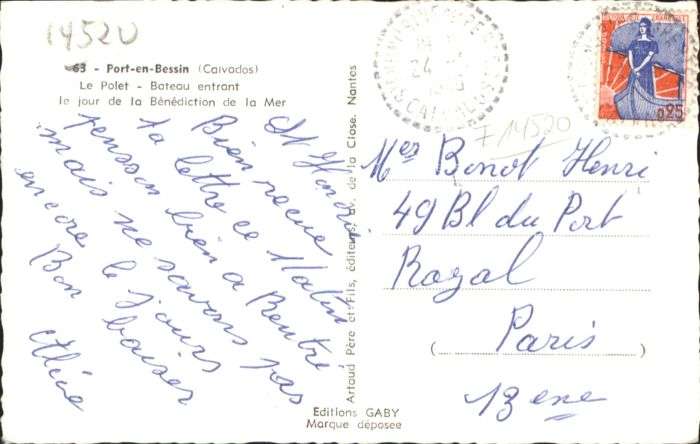 14520
63 - Port-en-Bessin (Calvados)
Le Polet - Bateau entrant
le jour de la Bénédiction de la Mer
St Honoré
Bien recue
ta lettre ce Matin
pensson bien a Rentré
mais ne savons pas
encore le jours
Bon baiser
Artaud Père et Fils, éditeurs, av. de la Close, Nantes
Editions GABY
Marque déposée
24
CALVADOS
0,25
F 14520
Mes Benot Henri
49 Bl du Port
Royal
Paris
13 ene